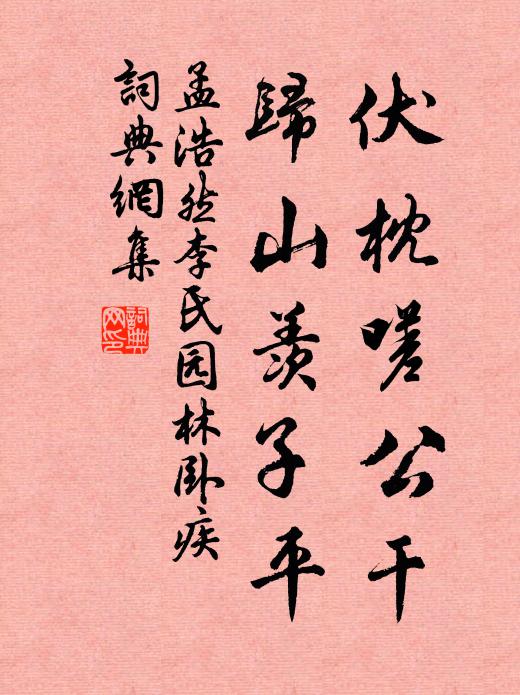 伏枕嗟公干
歸山羨子平
孟浩然李氏园林卧疾
詞典網集
詞典网印